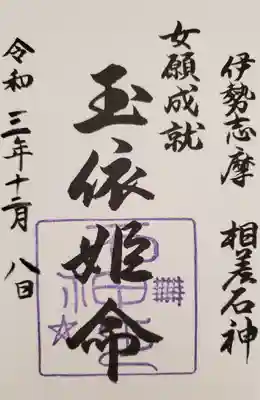 伊勢志摩 相差石神
女願成就
玉依姫命
令和三年十二月八日